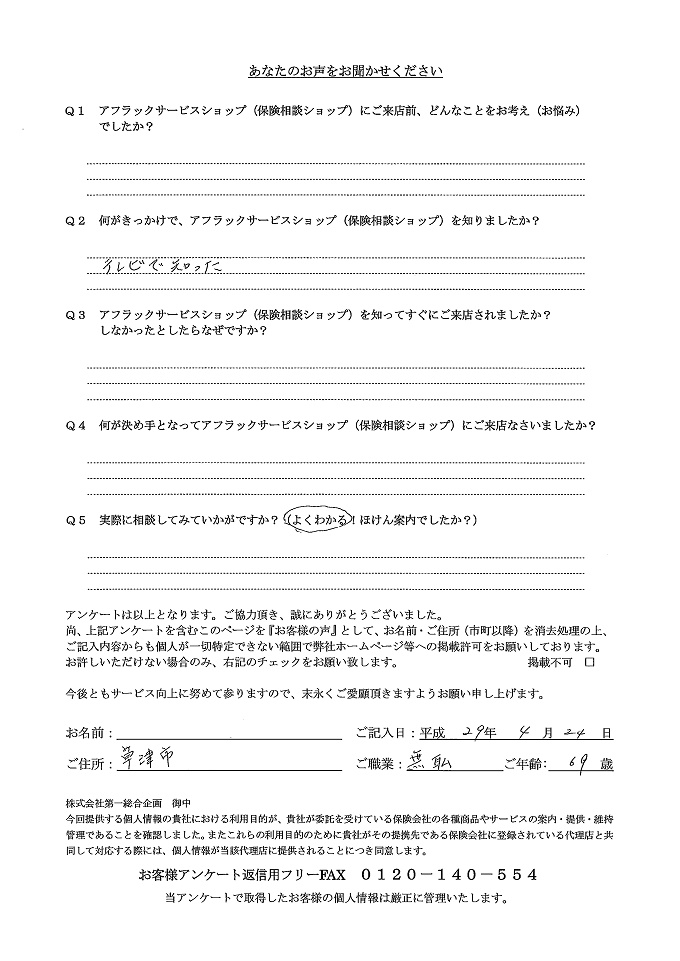 あなたのお声をお聞かせください
Q1 アフラックサービスショップ（保険相談ショップ）にご来店前、どんなことをお考え（お悩み）
でしたか？
Q2 何がきっかけで、アフラックサービスショップ（保険相談ショップ）を知りましたか？
テレビで知った
Q3 アフラックサービスショップ（保険相談ショップ）を知ってすぐにご来店されましたか？
しなかったとしたらなぜですか？
Q4 何が決め手となってアフラックサービスショップ（保険相談ショップ）にご来店なさいましたか？
Q5 実際に相談してみていかがですか？（よくわかる！ほけん案内でしたか？）
アンケートは以上となります。ご協力頂き、誠にありがとうございました。
尚、上記アンケートを含むこのページを『お客様の声』として、お名前・ご住所（市町以降）を消去処理の上、
ご記入内容からも個人が一切特定できない範囲で弊社ホームページ等への掲載許可をお願いしております。
お許しいただけない場合のみ、右記のチェックをお願い致します。 掲載不可 □
今後ともサービス向上に努めて参りますので、末永くご愛顧頂きますようお願い申し上げます。
お名前： ご記入日：平成 29年 4月 24日
ご住所：草津市 ご職業：無職 ご年齢：69歳
株式会社第一総合企画 御中
今回提供する個人情報の貴社における利用目的が、貴社が委託を受けている保険会社の各種商品やサービスの案内・提供・維持
管理であることを確認しました。またこれらの利用目的のために貴社がその提携先である保険会社に登録されている代理店と共
同して対応する際には、個人情報が当該代理店に提供されることにつき同意します。
お客様アンケート返信用フリーFAX 0120－140－554
当アンケートで取得したお客様の個人情報は厳正に管理いたします。